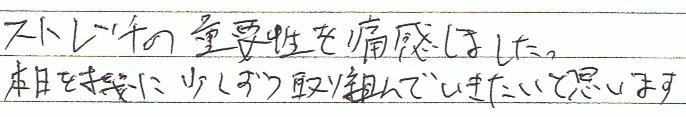 ストレッチの重要性を痛感しました。
本日を機に少しずつ取り組んでいきたいと思います